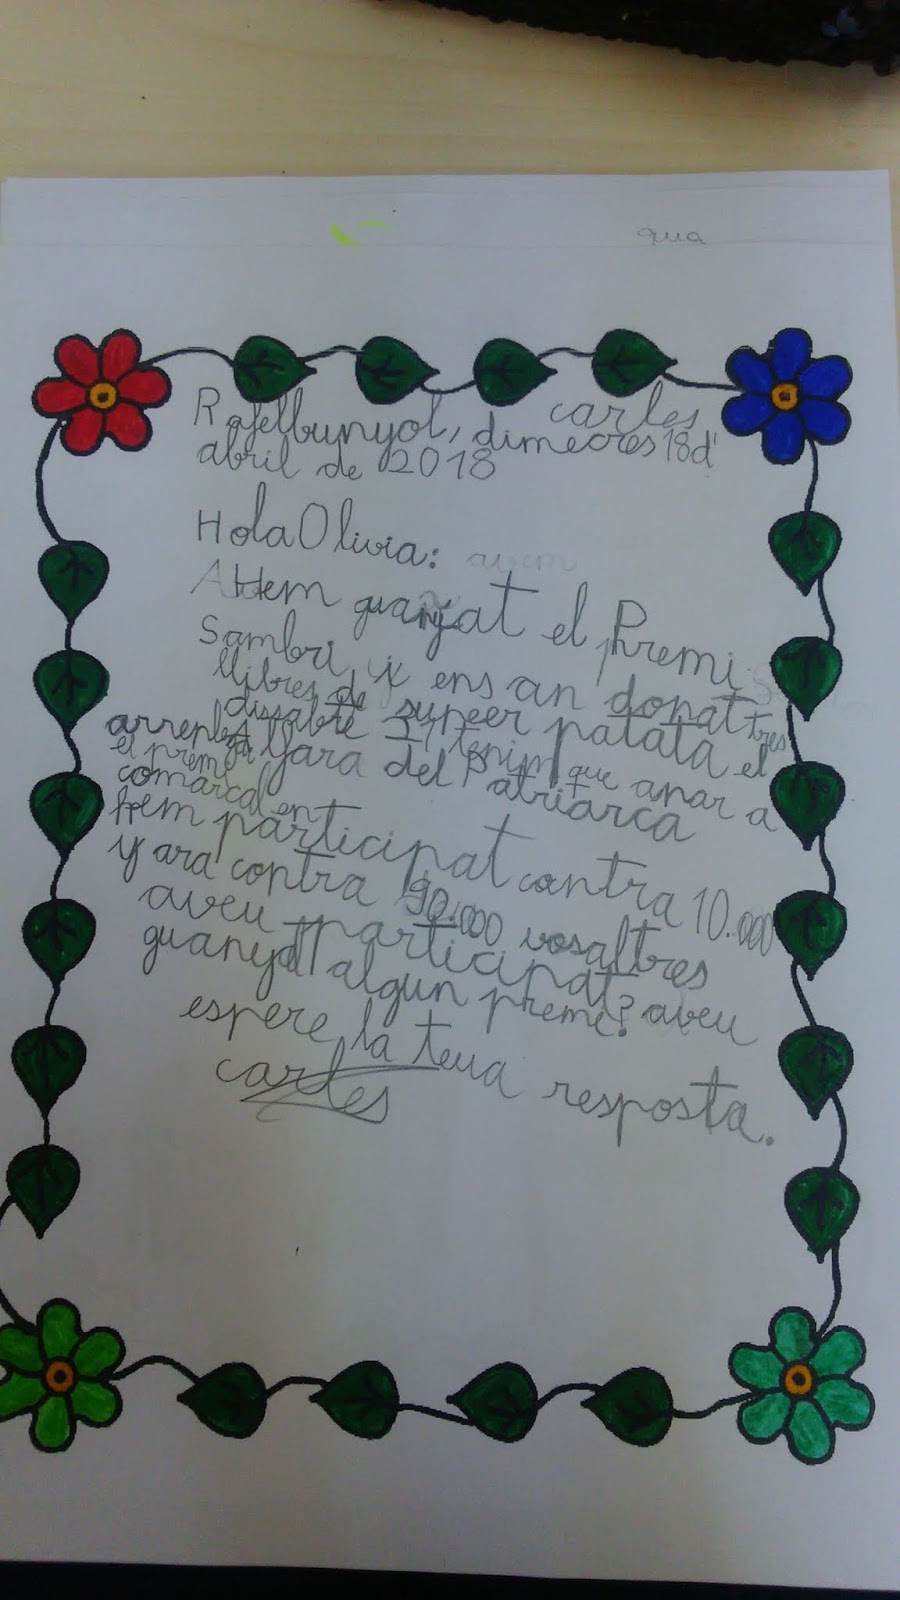 qua
carles
Rafelbunyol, dimecres 18 d'
abril de 2018
Hola Olivia:
Hem guanyat el Premi
Sambri, i ens an donat tres
llibres de super patata el
dissabte tenim que anar a
arreplegar
el premi
a Alfara del Patriarca
comarcal en
hem participat contra 10.000
y ara contra 90.000 vosaltres
aveu participat? aveu
guanyat algun premi?
espere la teua resposta.
carles